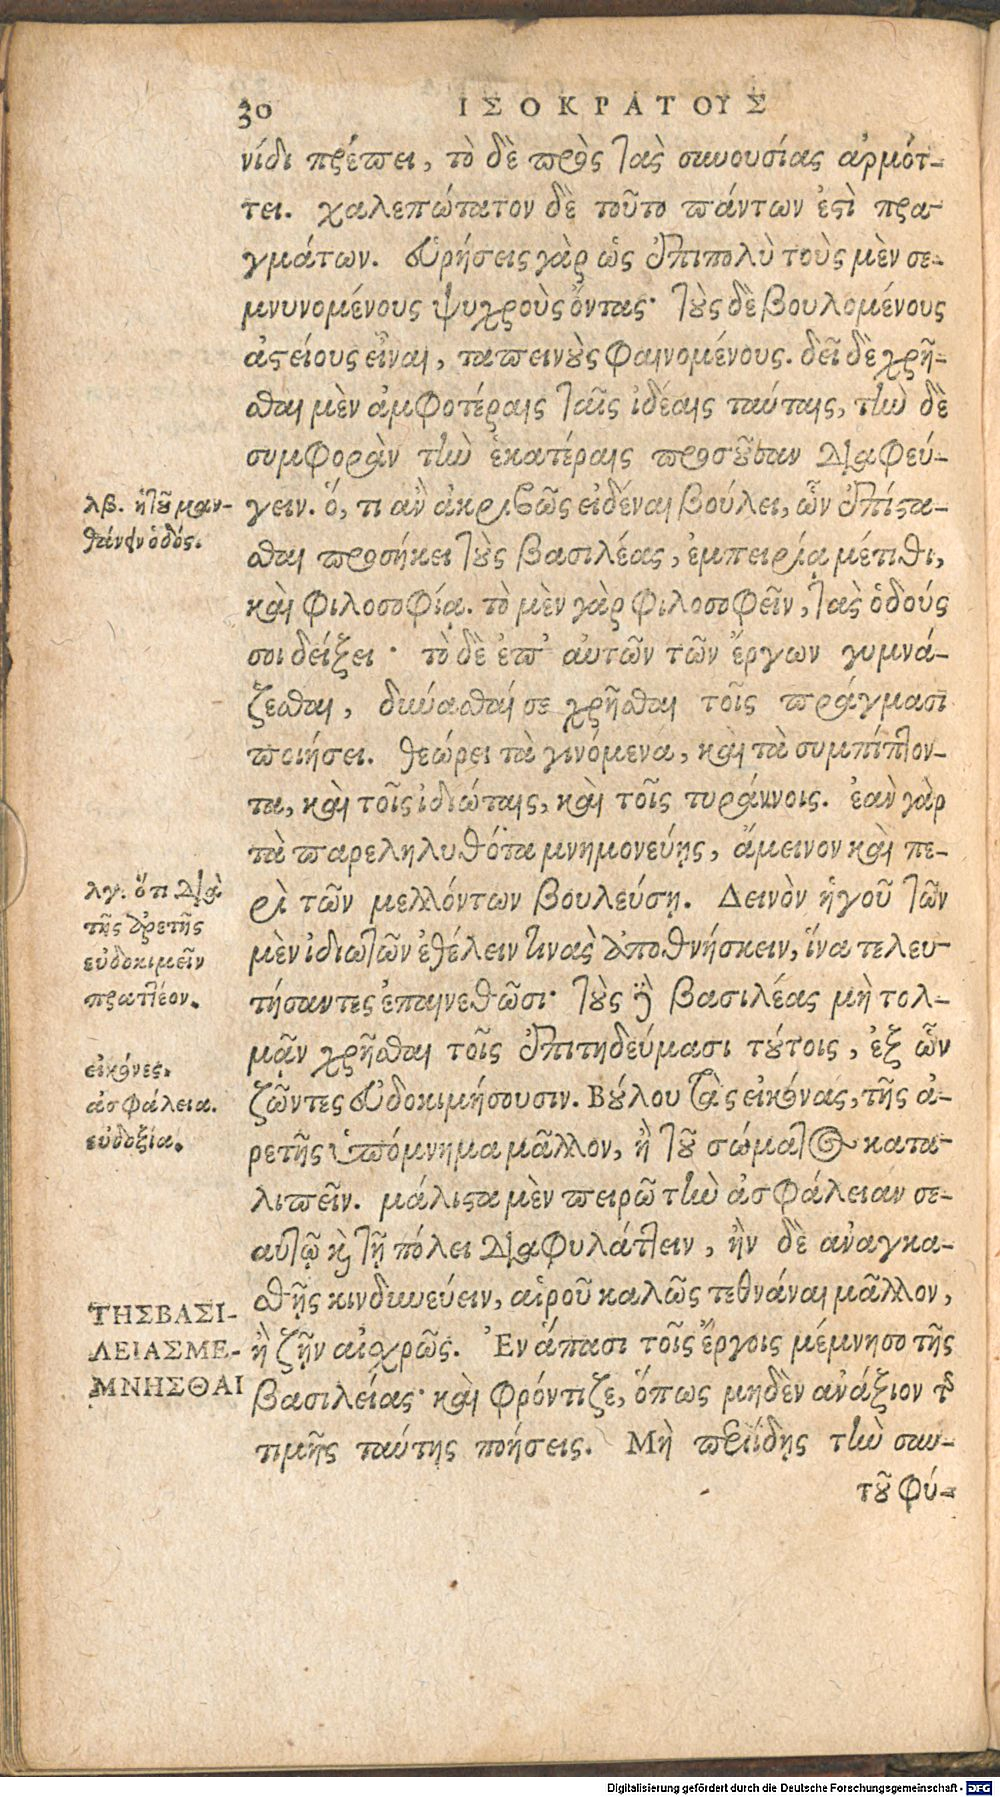 30 ΙΣΟΚΡΑΤΟΥΣ
νίδι πρέπει, τὸ δὲ πρὸς τὰς συνουσίας ἁρμότ-
τει. χαλεπώτατον δὲ τοῦτο πάντων ἐστὶ πρα-
γμάτων. εὑρήσεις γὰρ ὡς ἐπιπολὺ τοὺς μὲν σε-
μνυνομένους ψυχροὺς ὄντας· τοὺς δὲ βουλομένους
ἀστείους εἶναι, ταπεινοὺς φαινομένους. δεῖ δὲ χρῆ-
σθαι μὲν ἀμφοτέραις ταῖς ἰδέαις ταύταις, τὴν δὲ
συμφορὰν τὴν ἑκατέραις προσοῦσαν διαφεύ-
γειν. ὅ, τι ἂν ἀκριβῶς εἰδέναι βούλει, ὧν ἐπίστα-
σθαι προσήκει τοὺς βασιλέας, ἐμπειρίᾳ μέτιθι,
καὶ φιλοσοφίᾳ. τὸ μὲν γὰρ φιλοσοφεῖν, τὰς ὁδούς
σοι δείξει· τὸ δὲ ἐπ' αὐτῶν τῶν ἔργων γυμνά-
ζεσθαι, δύνασθαί σε χρῆσθαι τοῖς πράγμασι
ποιήσει. θεώρει τὰ γινόμενα, καὶ τὰ συμπίπτον-
τα, καὶ τοῖς ἰδιώταις, καὶ τοῖς τυράννοις. ἐὰν γὰρ
τὰ παρεληλυθότα μνημονεύῃς, ἄμεινον καὶ πε-
ρὶ τῶν μελλόντων βουλεύσῃ. Δεινὸν ἡγοῦ τῶν
μὲν ἰδιωτῶν ἐθέλειν τινὰς ἀποθνήσκειν, ἵνα τελευ-
τήσαντες ἐπαινεθῶσι· τοὺς δὲ βασιλέας μὴ τολ-
μᾷν χρῆσθαι τοῖς ἐπιτηδεύμασι τούτοις, ἐξ ὧν
ζῶντες εὐδοκιμήσουσιν. Βούλου τὰς εἰκόνας, τῆς ἀ-
ρετῆς ὑπόμνημα μᾶλλον, ἢ τοῦ σώματος κατα-
λιπεῖν. μάλιστα μὲν πειρῶ τὴν ἀσφάλειαν σε-
αυτῷ καὶ τῇ πόλει διαφυλάττειν, ἢν δὲ ἀναγκα-
σθῇς κινδυνεύειν, αἱροῦ καλῶς τεθνάναι μᾶλλον,
ἢ ζῇν αἰσχρῶς. Ἐν ἅπασι τοῖς ἔργοις μέμνησο τῆς
βασιλείας· καὶ φρόντιζε, ὅπως μηδὲν ἀνάξιον τῆς
τιμῆς ταύτης ποιήσεις. Μὴ περιίδῃς τὴν σαυ-
τοῦ φύ-
λβ. ἡ τοῦ μαν-
θάνειν ὁδός.
λγ. ὅτι διὰ
τῆς ἀρετῆς
εὐδοκιμεῖν
πρακτέον.
εἰκόνες.
ἀσφάλεια.
εὐδοξία.
ΤΗΣ ΒΑΣΙ-
ΛΕΙΑΣ ΜΕ-
ΜΝΗΣΘΑΙ
Digitalisierung gefördert durch die Deutsche Forschungsgemeinschaft - DFG